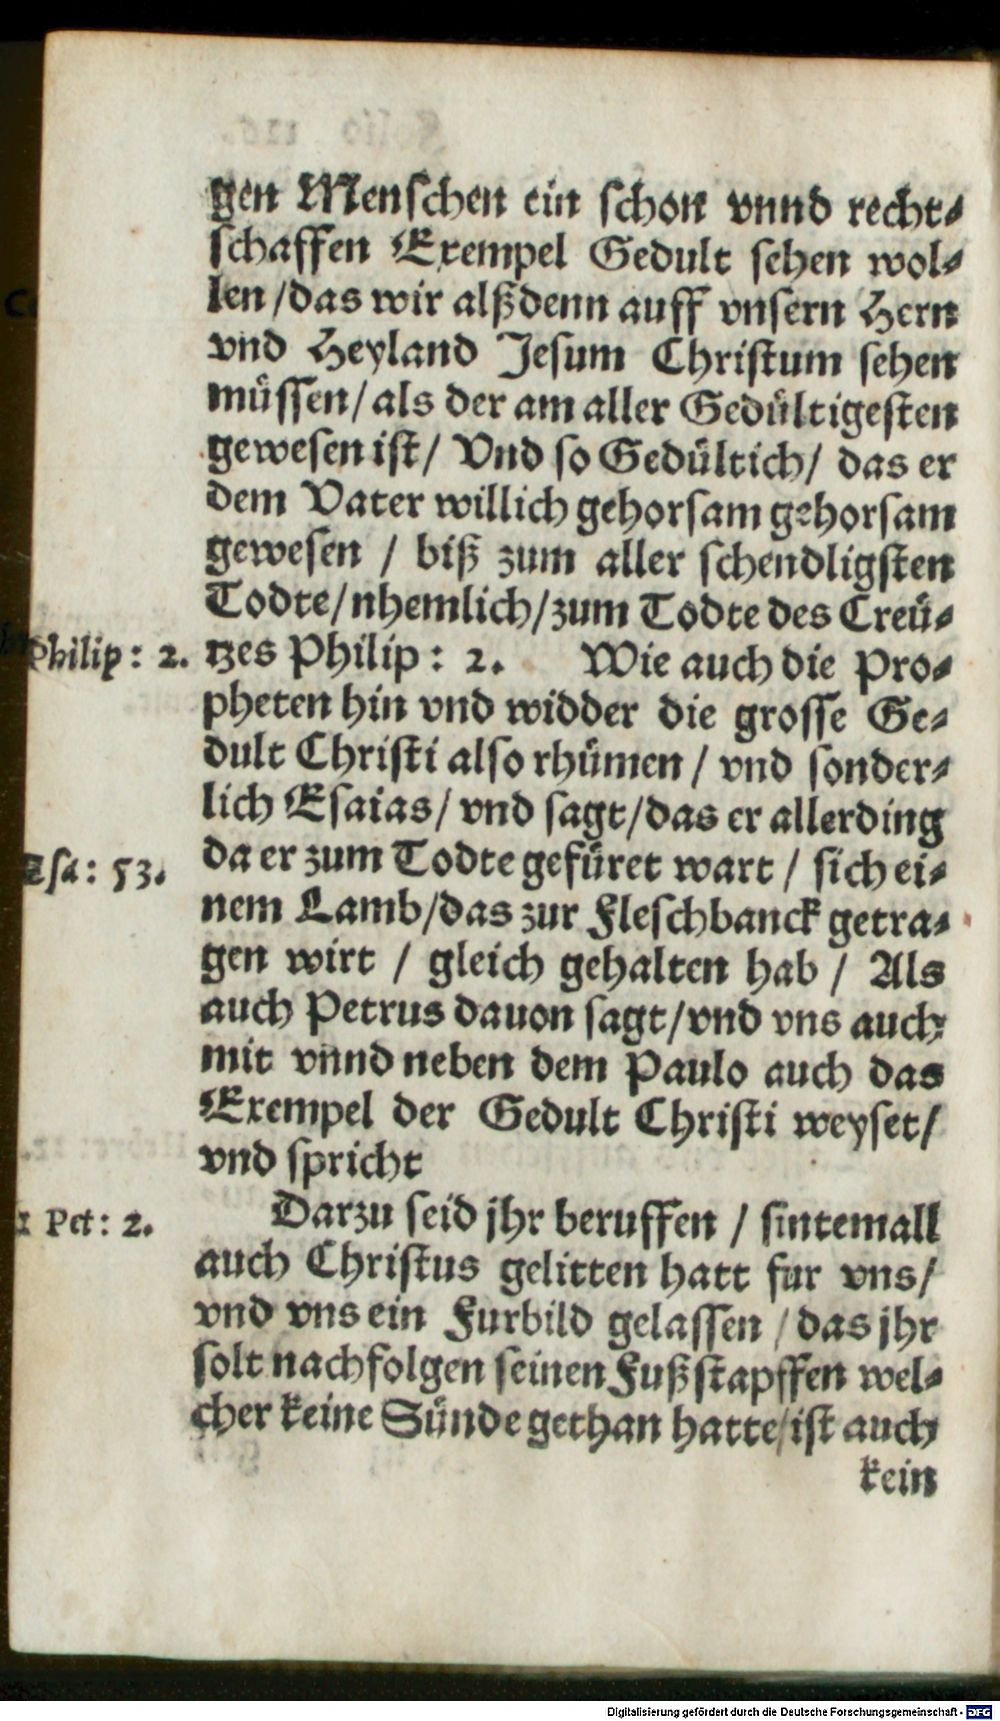 gen Menschen ein schon vnnd recht-
schaffen Exempel Gedult sehen wol-
len / das wir alßdenn auff vnsern Hern
vnd Heyland Jesum Christum sehen
müssen / als der am aller Gedültigesten
gewesen ist / Vnd so Gedültich / das er
dem Vater willich gehorsam gehorsam
gewesen / biß zum aller schendligsten
Todte / nhemlich / zum Todte des Creü-
Philip: 2. tzes Philip: 2. Wie auch die Pro-
pheten hin vnd widder die grosse Ge-
dult Christi also rhümen / vnd sonder-
lich Esaias / vnd sagt / das er allerding
Esa: 53. da er zum Todte gefüret wart / sich ei-
nem Lamb / das zur Fleschbanck getra-
gen wirt / gleich gehalten hab / Als
auch Petrus dauon sagt / vnd vns auch
mit vnnd neben dem Paulo auch das
Exempel der Gedult Christi weyset /
vnd spricht
1 Pet: 2. Darzu seid jhr beruffen / sintemall
auch Christus gelitten hatt fur vns /
vnd vns ein Furbild gelassen / das jhr
solt nachfolgen seinen Fußstapffen wel-
cher keine Sünde gethan hatte / ist auch
kein
Digitalisierung gefördert durch die Deutsche Forschungsgemeinschaft - DFG